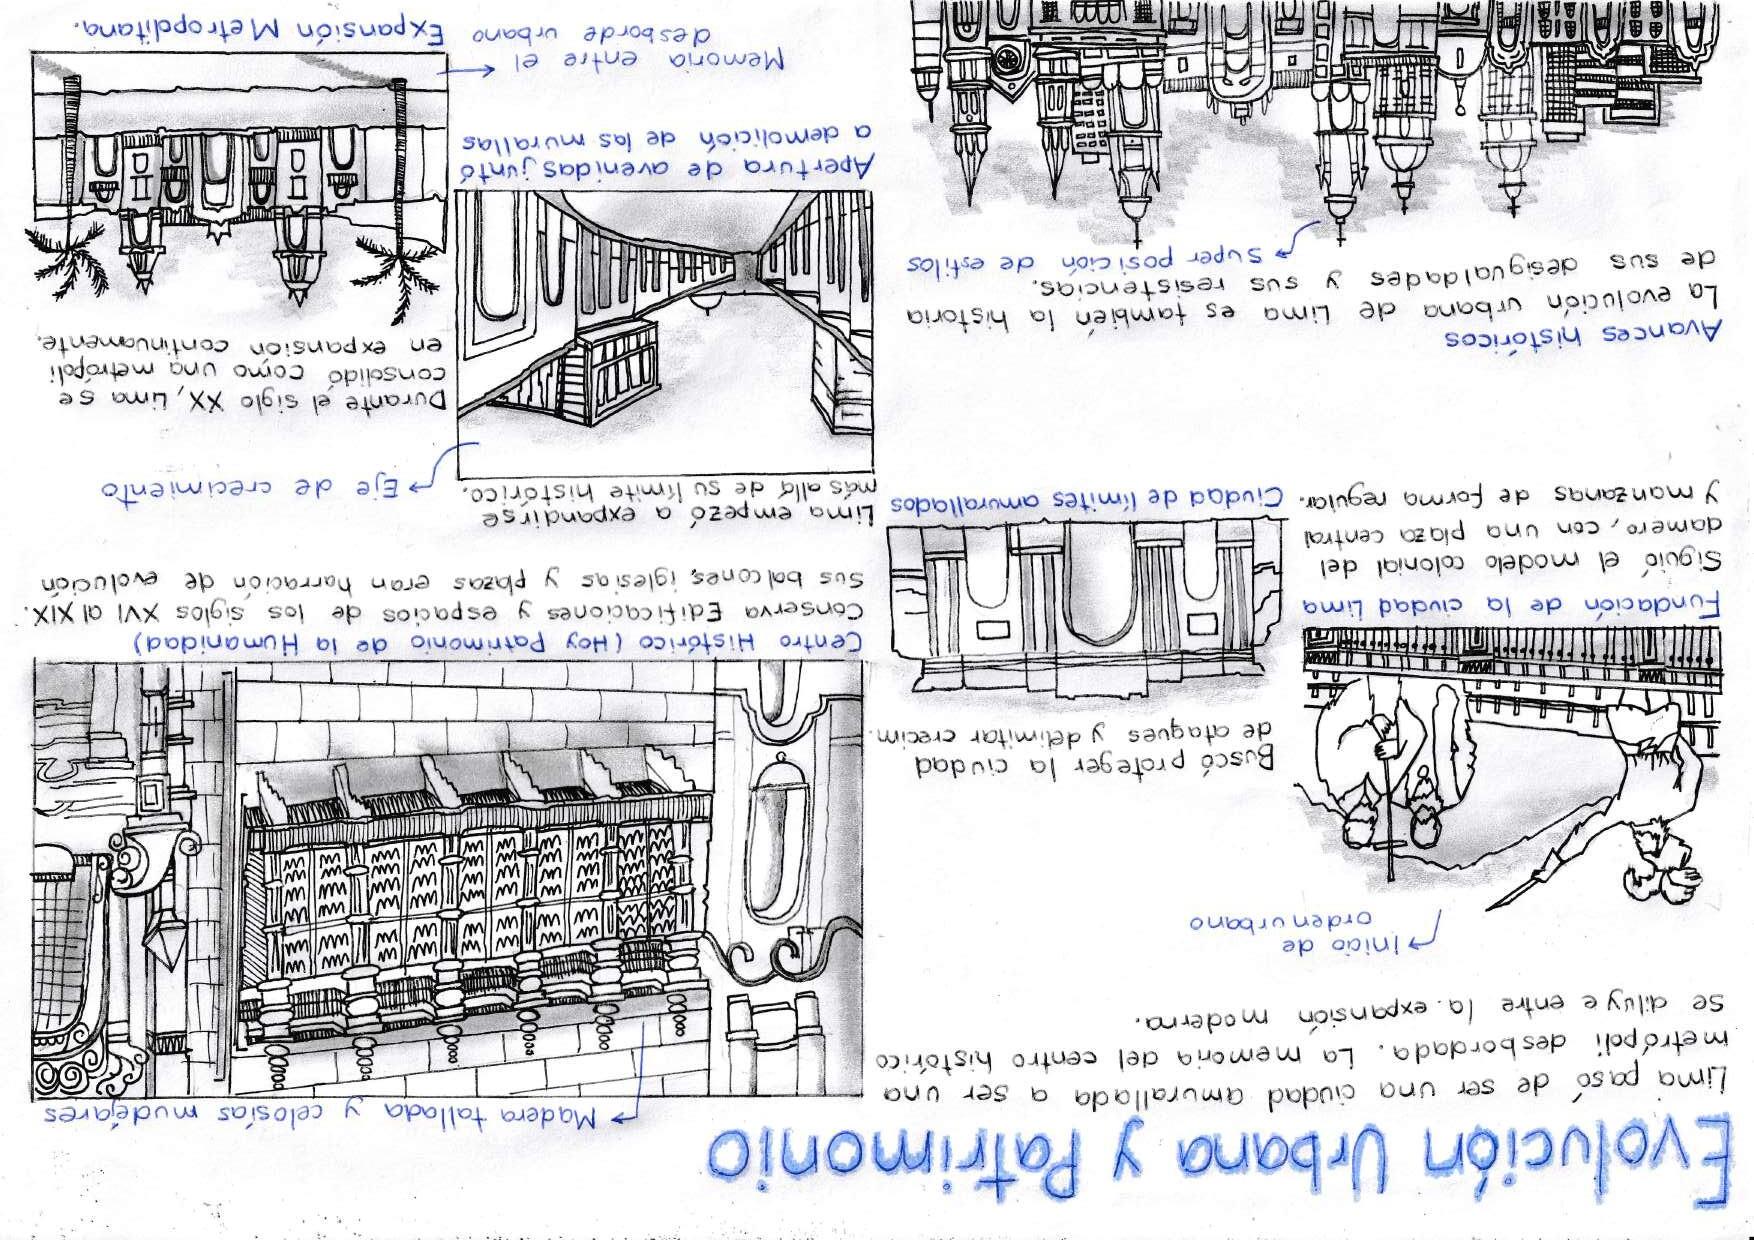 Evolución Urbana y Patrimonio
Lima pasó de ser una ciudad amurallada a ser una
metrópoli desbordada. La memoria del centro histórico
se diluye entre la expansión moderna.
Inicio de
orden urbano
Fundación de la ciudad Lima
Siguió el modelo colonial del
damero, con una plaza central
y manzanas de forma regular.
Buscó proteger la ciudad
de ataques y delimitar crecim.
Ciudad de límites amurallados
Avances históricos
La evolución urbana de Lima es también la historia
de sus desigualdades y sus resistencias.
Super posición de estilos
Madera tallada y celosías mudéjares
Centro Histórico (Hoy Patrimonio de la Humanidad)
Conserva Edificaciones y espacios de los siglos XVI al XIX.
Sus balcones, iglesias y plazas eran narración de evolución
Lima empezó a expandirse
más allá de su límite histórico.
Eje de crecimiento
Apertura de avenidas juntó
a demolición de las murallas
Durante el siglo XX, Lima se
consolidó como una metrópoli
en expansión continuamente.
Memoria entre el
desborde urbano
Expansión Metropolitana.